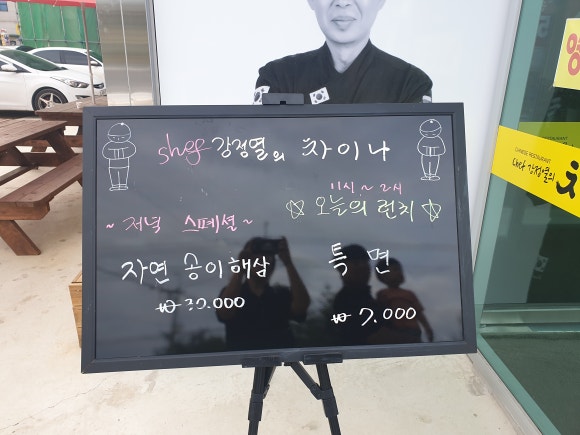 shef 강정열의 차이나
~ 저녁 스페셜 ~
자연 송이해삼
₩ 30.000
11시 ~ 2시
☆ 오늘의 런치 ☆
특 면
₩ 7.000
CHINESE RESTAURANT
강정열의